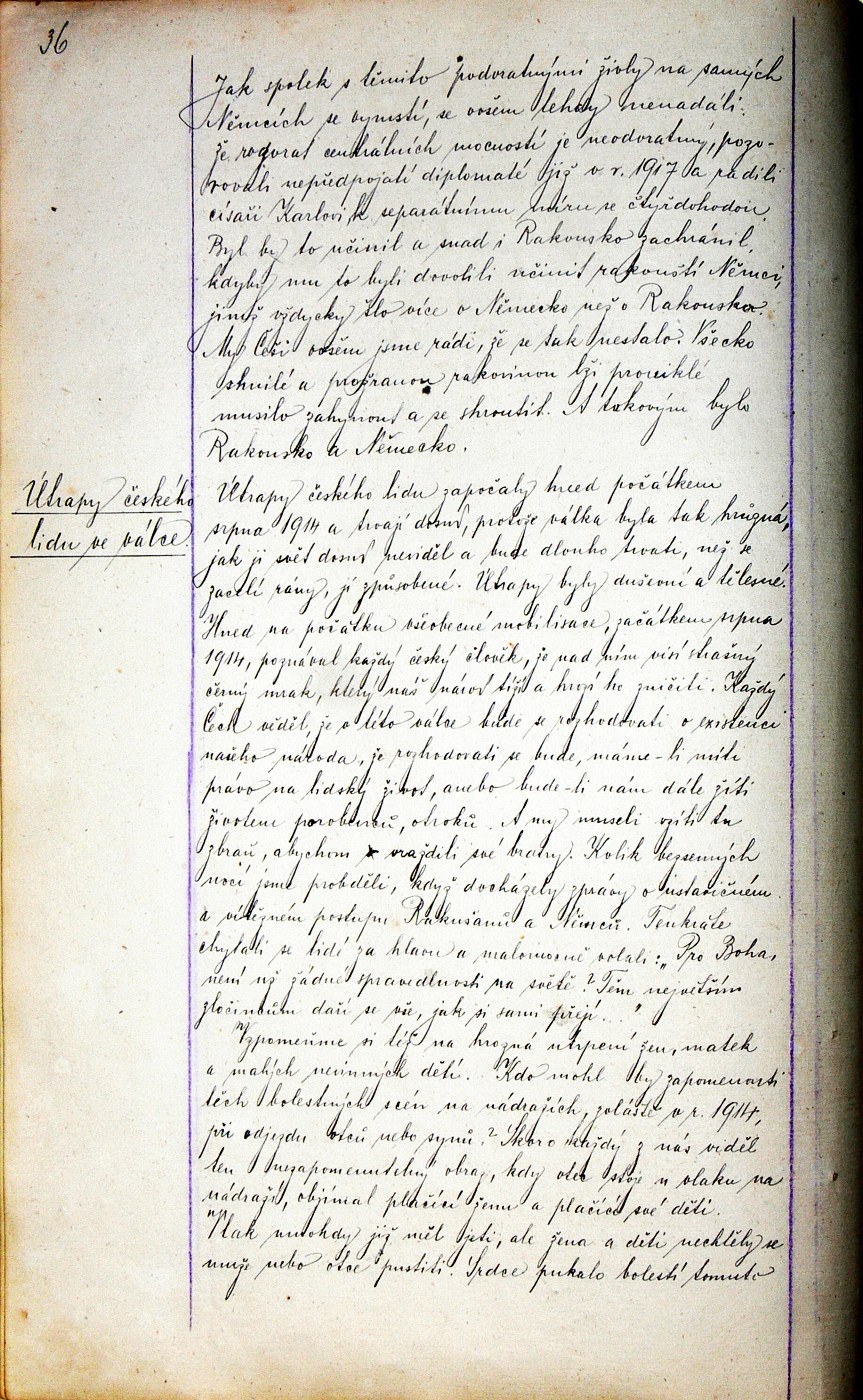 36
Jak spolek s těmito podvratnými živly na samých
Němcích se vymstí, se ovšem tehdy nenadáli.
Že rozvrat centrálních mocností je neodvratný, pozo-
rovali nepředpojatí diplomaté již v r. 1917 a radili
císaři Karlovi k separátnímu míru se čtyřdohodou.
Byl by to učinil a snad i Rakousko zachránil,
kdyby mu to byli dovolili učinit rakouští Němci,
jimž vždycky šlo více o Německo než o Rakousko.
My Češi ovšem jsme rádi, že se tak nestalo. Všecko
shnilé a prožranou rakovinou lži proniklé
musilo zahynout a se shroutit. A takovým bylo
Rakousko a Německo.
Útrapy českého
lidu ve válce.
Útrapy českého lidu započaly hned počátkem
srpna 1914 a trvají dosud, protože válka byla tak hrůzná,
jak ji svět dosud neviděl a bude dlouho trvati, než se
zacelí rány, jí způsobené. Útrapy byly duševní a tělesné.
Hned na počátku všeobecné mobilisace, začátkem srpna
1914, poznával každý český člověk, že nad ním visí strašný
černý mrak, který náš národ tíží a hrozí ho zničiti. Každý
Čech věděl, že v této válce bude se rozhodovati o existenci
našeho národa, že rozhodovati se bude, máme-li míti
právo na lidský život, anebo bude-li nám dále žíti
životem porobenců, otroků. A my museli vzíti tu
zbraň, abychom vraždili své bratry. Kolik bezsenných
nocí jsme probděli, když docházely zprávy o ustavičném
a vítězném postupu Rakušanů a Němců. Tenkráte
chytali se lidé za hlavu a malomocně volali: „Pro Boha,
není už žádné spravedlnosti na světě? Těm největším
zločincům daří se vše, jak si sami přejí..."
Vzpomeňme si též na hrozná utrpení žen, matek
a malých nevinných dětí. Kdo mohl by zapomenouti
těch bolestných scén na nádražích, zvláště v r. 1914,
při odjezdu otců nebo synů? Skoro každý z nás viděl
ten nezapomenutelný obraz, kdy otec stoje u vlaku na
nádraží, objímal plačící ženu a plačící své děti.
Vlak mnohdy již měl jeti, ale žena a děti nechtěly se
muže nebo otce pustiti. Srdce pukalo bolestí tomuto